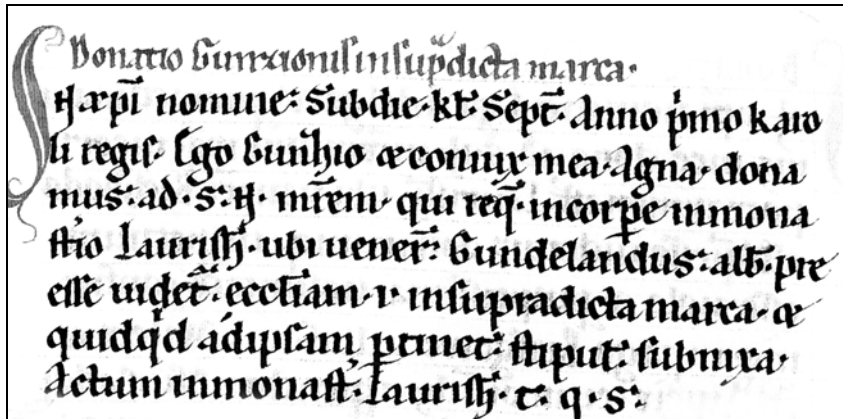 Donatio Gunzionis in sup̄dicta marca·
IN xp̄i nomine· Sub die· kl̄· Sept̄· Anno p̍mo karo
li regis· Ego Gunzio & coniux mea· Agna· dona
mus· ad· S· N· mr̄em· qui req̄· in corꝑe in mona
st̄io Laurish̄· ubi uener̄· Gundelandus· abb̄· pre
esse uidet̄· eccl̄iam· ı· in supradicta marca· &
quidq̍d ad ipsam ꝑtinet· stiput̄· subnixa·
Actum in monast̄· Laurish̄· t̄· q· s·